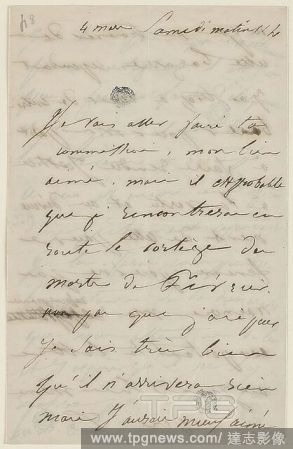 84
4 mars Samedi matin 11h
Je vais aller faire ta
commission, mon bien
aimé, mais il est probable
que je rencontrerai en
route le cortège des
morts de Février.
non pas que j'aie peur
je sais très bien
qu'il n'arrivera rien
mais j'aurais mieux aimé
www.tpgnews.com/達志影像